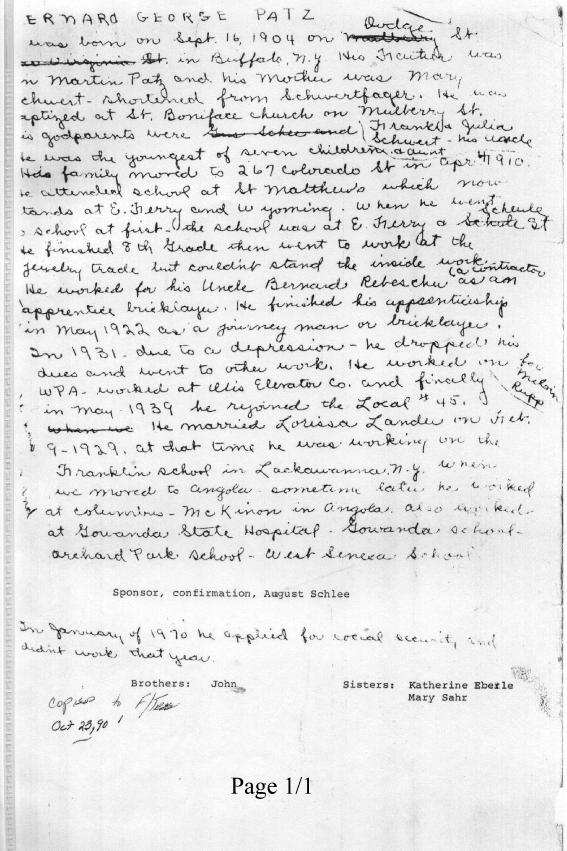 ERNARD GEORGE PATZ
Dodge
was born on Sept. 16, 1904 on Mulberry St.
Virginia St. in Buffalo, N.Y. His Father was
n Martin Patz and his Mother was Mary
chwert - shortened from Schwertfager. He was
aptized at St. Boniface church on Mulberry St.
is godparents were Gus Schee and Frank & Julia
Schwert - his uncle
& aunt
He was the youngest of seven children.
His family moved to 267 Colorado St in Apr 4, 1910.
He attended school at St Matthew's which now
tands at E. Ferry and Wyoming. When he went
o school at first - the school was at E. Ferry & Schule St
Scheule
He finished 8th Grade then went to work at the
jewelry trade but couldn't stand the inside work.
He worked for his Uncle Bernard Rebeschu (a contractor as an
apprentice bricklayer. He finished his apprenticeship
in May 1922 as a journey man or bricklayer.
In 1931 - due to a depression - he dropped his
dues and went to other work. He worked on for
WPA - worked at Otis Elevator Co. and finally Melvin
Rupp
in May 1939 he rejoined the Local #45.
when we He married Lorissa Lander on Feb.
9 - 1929. at that time he was working on the
Franklin school in Lackawanna, N.Y. when
we moved to Angola - sometime later he worked
at Columbus - McKinon in Angola. also worked
at Gowanda State Hospital - Gowanda school -
orchard Park school - West Seneca School
Sponsor, confirmation, August Schlee
In January of 1970 he applied for social security and
didn't work that year.
Brothers: John Sisters: Katherine Eberle
Mary Sahr
copies to
Oct 23, 90
Page 1/1